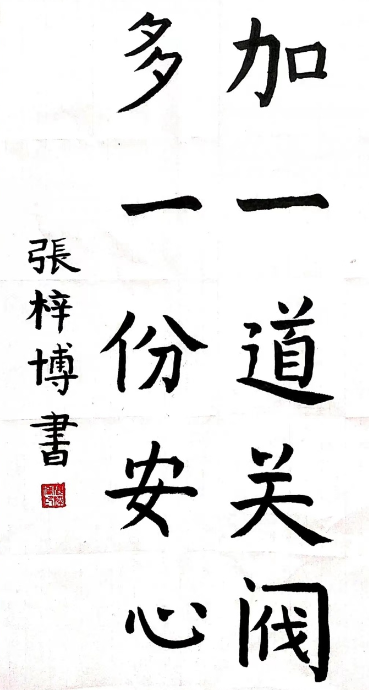 加一道关阀
多一份安心
張梓博書